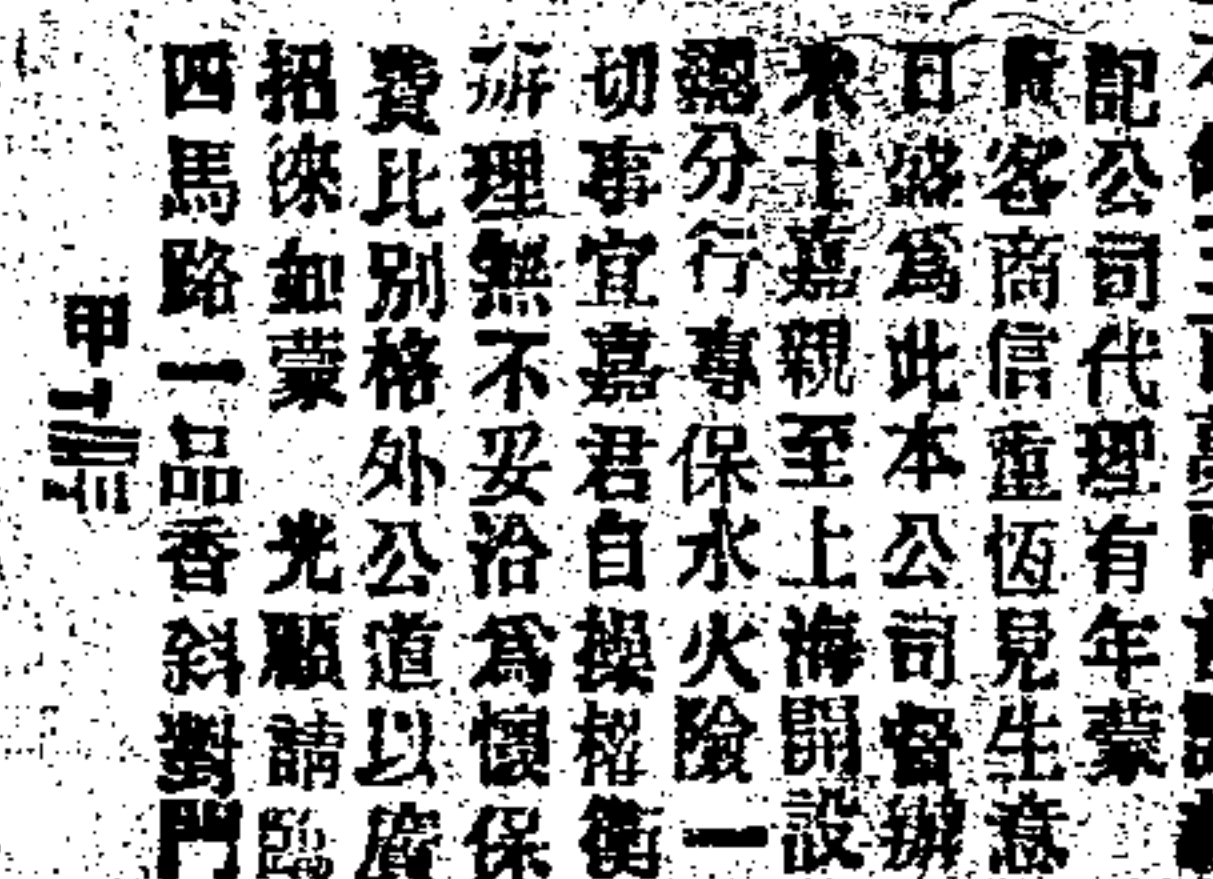 記公司代理有年蒙
貴客商信重恆見生意
日盛爲此本公司督辦
米士嘉親至上海開設
總分行專保水火險一
切事宜嘉君自操權衡
辦理無不妥洽爲懷保
費比別格外公道以廣
招徠如蒙 光顧請臨
四馬路一品香斜對門